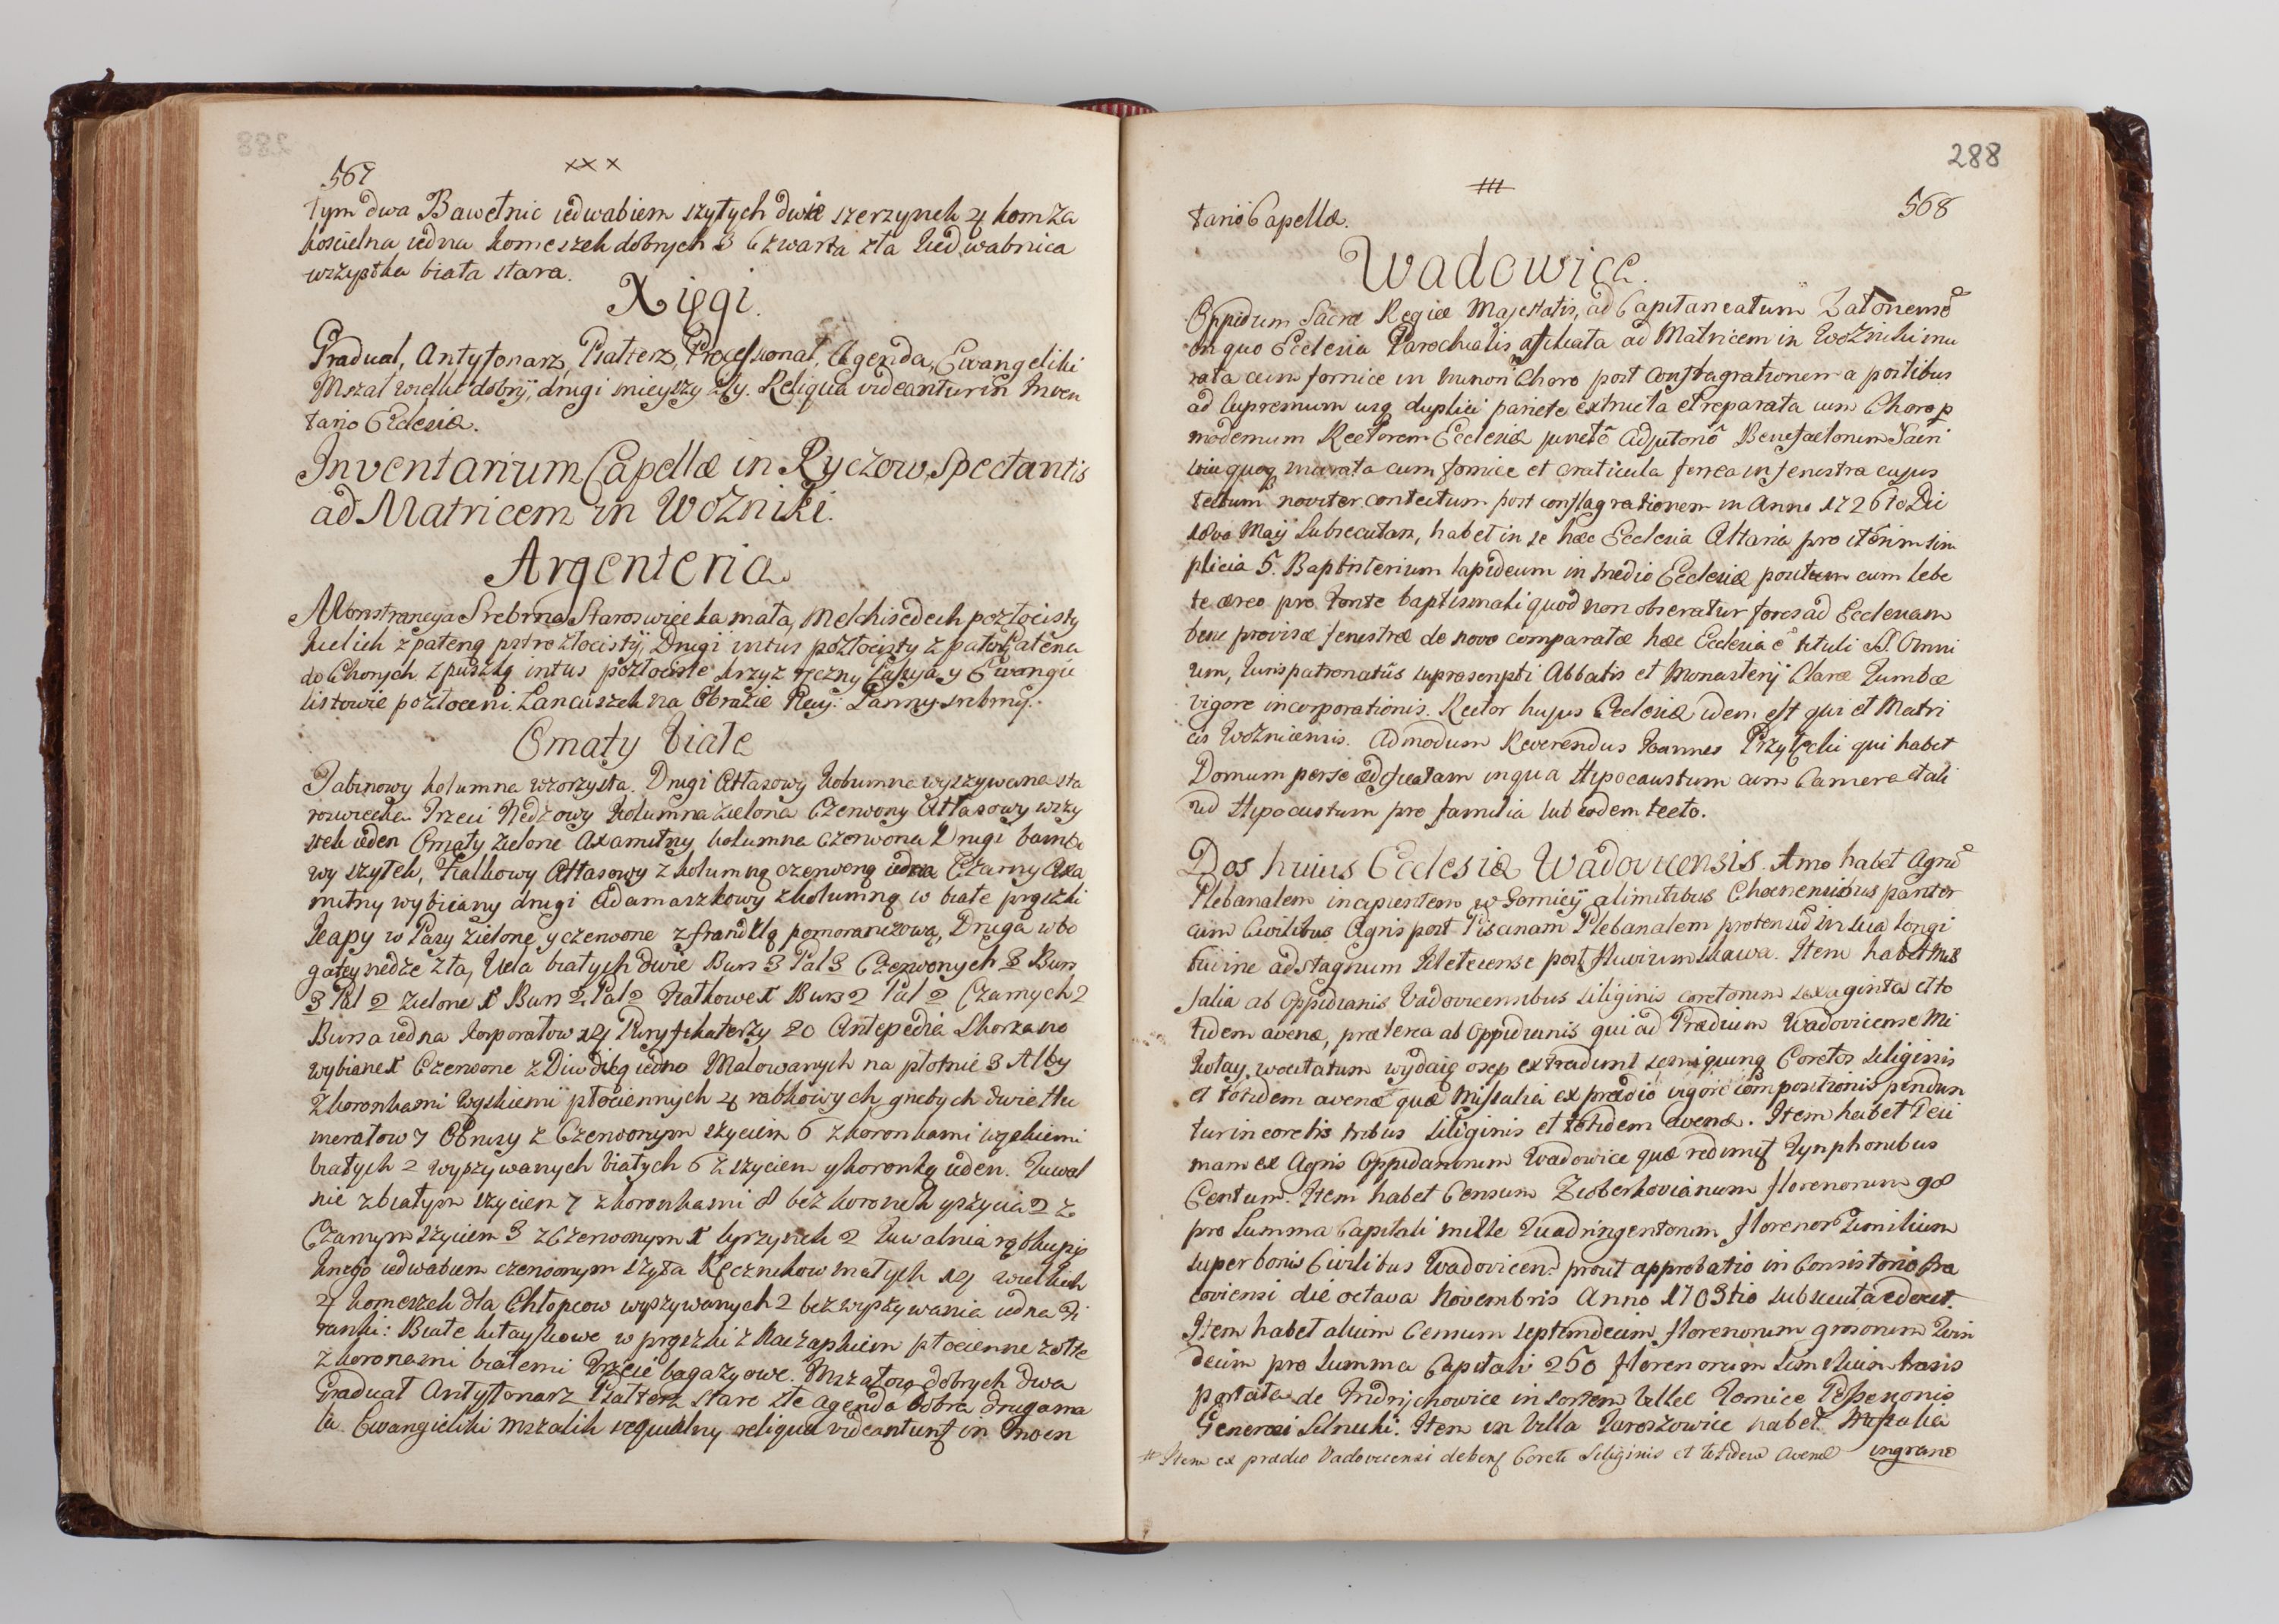 567
tym dwa Bawełnic iedwabiem szytych dwie szerzynek 4 komża
kościelna iedna komeszek dobrych 3 Czwarta zła Iedwabnica
wszystka biała stara.
Xięgi.
Gradual, Antyfonarz, Psałterz, Processional, Agenda, Ewangeliki
Mszał wielki dobrÿ, drugi mieyszy zły. Reliqua videantur in Inven
tario Ecclesiæ.
Inventarium Capellæ in Ryczow, Spectantis
ad Matricem in Wozniki.
Argenteria
Monstrancya Srebrna Staroswiecka mała, Melchisedech pozłocisty
kielich z pateną pstro złocistÿ, Drugi intus pozłocisty z
do Chorych z puszką intus pozłociste krzyż ręczny Passyja y Ewangie
listowie pozłoceni. Łancuszek na Obrazie Nay: Panny srebrny.
Ornaty białe
Tabinowy kolumna wzorzysta. Drugi Atłasowy kolumna wyszywana sta
roswiecka. Trzeci Kolumna zielona Czerwony Atłasowy wszy
stek ieden Ornaty zielone Axamitny kolumna czerwona Drugi
wy szytek, Fiałkowy Atłasowy z kolumną czerwoną ieden Czarny Axa
mitny wybiiany drugi Adamaszkowy z kolumną w białe prążki
Kapy w Pasy zielone y czerwone z frandzlą pomoranczową, Druga w bo
gatey nędze zła, Vela białych dwie Burs 3 Pal 3 Czerwonych 3 Burs
3 Pal 2 zielone 1 Burs 2 Pal 2 Fiałkowe 1 Burs 2 Pal 2 Czarnych 2
Bursa iedna Korporałow 14 Puryfikaterzy 20 Antepedia Skorzano
wybiane 1 Czerwone z iedno Malowanych na płotnie 3 Alby
z koronkami Wąskiemi płociennych 4 rabkowych grubych dwie Hu
merałow 7 Obrusy z Czerwonym szyciem 6 z koronkami wąskiemi
białych 2 wyszywanych białych 6 z szyciem y koronką ieden. Tuwal
nie z białym szyciem 7 z koronkami 8 bez koronek y szycia 2 z
Czarnym szyciem 3 z Czerwonym 1 2 Tuwalnia
iedwabiem czerwonym szyta Ręcznikow małych 14 wielkich
4 komeszek dla Chłopcow wyszywanych 2 bez wyszywania iedna Fi
ranki: Białe kitaykowe w prążki z płocienne zołte
z koronkami białemi Trzecie bagazyowe. Mszałow dobrych dwa
Graduał Antyfonarz Psałterz stare złe agenda dobra druga ma
ła Ewangieliki mszalik requialny reliqua videantur in Inven
288
568
tario Capellæ.
Wadowice.
Oppidum Sacræ Regiæ Majestatis, ad Capitaneatum Zatorien.
in quo Ecclesia Parochialis affiliata ad Matricem in Wozniki mu
rata cum fornice in minori Choro post Conflagrationem a postibus
ad supremum usq duplici pariete extructa et reparata cum Choro p
modernum Rectorem Ecclesiæ Adjutorio Benefactorum Sacri
stia quoq murata cum fornice et craticula ferrea in fenestra cujus
tectum noviter contectum post conflagrationem in Anno 1726to Die
18va Maÿ Subsecutam, habet in se hæc Ecclesia Altaria pro sim
plicia 5. Baptisterium lapideum in medio Ecclesiæ positum cum lebe
te æreo pro fonte baptismali quod non obseratur fores ad Ecclesiam
bene provisæ fenestræ de novo comparatæ hæc Ecclesia e tituli SS. Omni
um, Iurispatronatûs suprascripti Abbatis et Monasterÿ Claræ Tumbæ
vigore incorporationis. Rector hujus Ecclesiæ idem est qui et Matri
cis Wozniciensis. Admodum Reverendus Ioannes Przyłęcki qui habet
Domum per se ædificatam in qua Hypocaustum cum Camera et ali
ud Hypocaustum pro familia sub eodem tecto.
Dos huius Ecclesiæ Wadovicensis. Imo habet Agrũ
Plebanalem incipientem w Gornicÿ a limitibus Choenensibus pariter
cum Civilibus Agris post Piscinam Plebanalem protensũ in sua longi
tudine ad stagnum post fluvium Skawa. Item habet Mis
salia ab Oppidanis Vadovicensibus siliginis coretorum sexaginta et to
tidem avenæ, præterea ab Oppidanis qui ad Prædium Wadovicense Mi
kołay vocitatum wydaią osep extradunt coretos siliginis
et totidem avenæ quæ Missalia ex prædio vigore compositionis pendun
tur in coretis tribus siliginis et totidem avenæ. Item habet Deci
mam ex Agris Oppidanorum Wadowice quæ redimit Tynphonibus
Centum. Item habet Censum Zioberkovianum florenorum 98
pro Summa Capitali mille Quadringentorum florenor similium
super bonis Civilibus Wadovicen. prout approbatio in Consistorio Cra
coviensi die octava Novembris Anno 1703tio subsecuta edocet.
Item habet alium Censum septemdecim florenorum grosorum Quin
decim pro Summa Capitali 250 florenorum similium trans
portata de Indrychowice in sortem Villæ Tomice
Generosi Item in Villa Iaroszowice habet Missalia
# Item ex prædio Vadovicensi Coreti Siliginis et totidem avenæ in grano